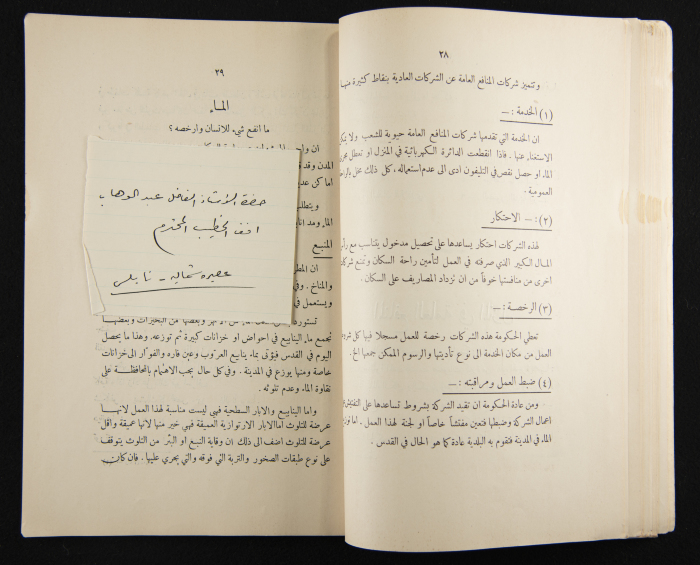 ٣٨
وتتميز شركات المنافع العامة عن الشركات العادية بنقاط كثيرة منها
(١) الخدمة : —
ان الخدمة التي تقدمها شركات المنافع العامة حيوية للشعب ولا يمكن
الاستغناء عنها . فاذا انقطعت الدائرة الكهربائية في المنزل او تعطل مجرى
الماء او حصل نقص في التليفون ادى الى عدم استعماله ، كل ذلك مخل
العمومية .
(٢) : — الاحتكار
لهذه الشركات احتكار يساعدها على تحصيل مدخول يتناسب مع
المال الكبير الذي صرفته في العمل لتأمين راحة السكان وتمنع
اخرى من منافستها خوفاً من ان تزداد المصاريف على السكان .
(٣) الرخصة : —
تعطي الحكومة هذه الشركات رخصة للعمل مسجلا فيها كل
العمل من مكان الخدمة الى نوع تأديتها والرسوم الممكن جمعها الخ .
(٤) ضبط العمل ومراقبته : —
ومن عادة الحكومة ان تقيد الشركة بشروط تساعدها على التفتيش
اعمال الشركة وضبطها فتعين مفتشاً خاصاً او لجنة لهذا العمل . اما
الماء في المدينة فتقوم به البلدية عادة كما هو الحال في القدس .
٢٩
الماء
ما انفع شيء للانسان وارخصه ؟
المدن وقد
اماكن
ويتطلب
الماء ومد
المنبع
ان
والمناخ . وفي
ويستعمل في
تجمع ماء الينابيع في احواض او خزانات كبيرة ثم توزعه . وهذا ما يحصل
اليوم في القدس فيؤتى بماء ينابيع العروب وعين فاره والفوار الى خزانات
خاصة ومنها يوزع في المدينة . وفي كل حال يجب الاهتمام بالمحافظة على
نقاوة الماء وعدم تلوثه .
واما الينابيع والابار السطحية فهي ليست مناسبة لهذا العمل لانها
عرضة للتلوث اما الابار الارتوازية العميقة فهي خير منها لانها عميقة واقل
عرضة للتلوث اضف الى ذلك ان وقاية النبع او البئر من التلوث يتوقف
على نوع طبقات الصخور والتربة التي فوقه والتي يجري عليها . فان كان
حضرة الأستاذ الفاضل عبد الوهاب
افندي الخطيب المحترم
عصيره شماليه - نابلس